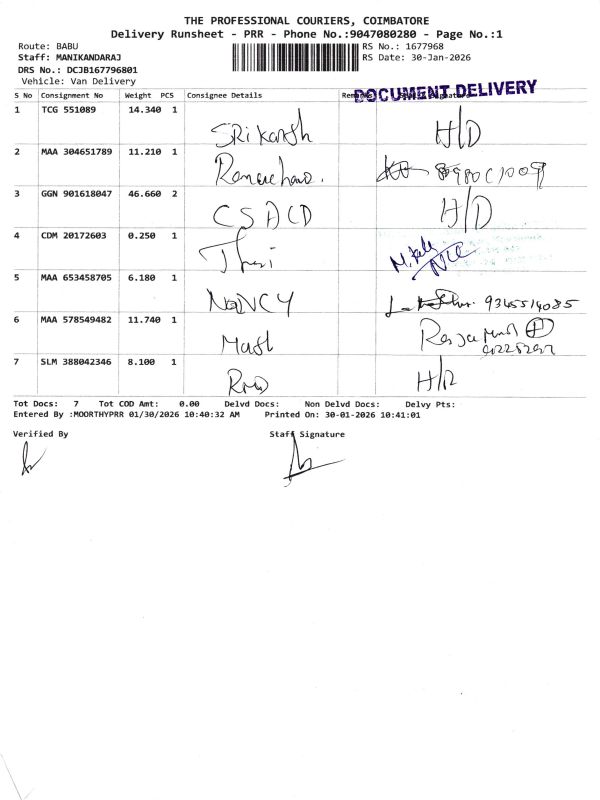 THE PROFESSIONAL COURIERS, COIMBATORE
Delivery Runsheet - PRR - Phone No.:9047080280 - Page No.:1
Route: BABU
Staff: MANIKANDARAJ
DRS No.: DCJB167796801
Vehicle: Van Delivery
RS No.: 1677968
RS Date: 30-Jan-2026
DOCUMENT DELIVERY
S No Consignment No Weight PCS Consignee Details
1 TCG 551089 14.340 1 SRikanth H/D
2 MAA 304651789 11.210 1
3 GGN 901618047 46.660 2 H/D
4 CDM 20172603 0.250 1
5 MAA 653458705 6.180 1 NaNCY 9345514085
6 MAA 578549482 11.740 1
7 SLM 388042346 8.100 1
Tot Docs: 7 Tot COD Amt: 0.00 Delvd Docs: Non Delvd Docs: Delvy Pts:
Entered By :MOORTHYPRR 01/30/2026 10:40:32 AM Printed On: 30-01-2026 10:41:01
Verified By Staff Signature